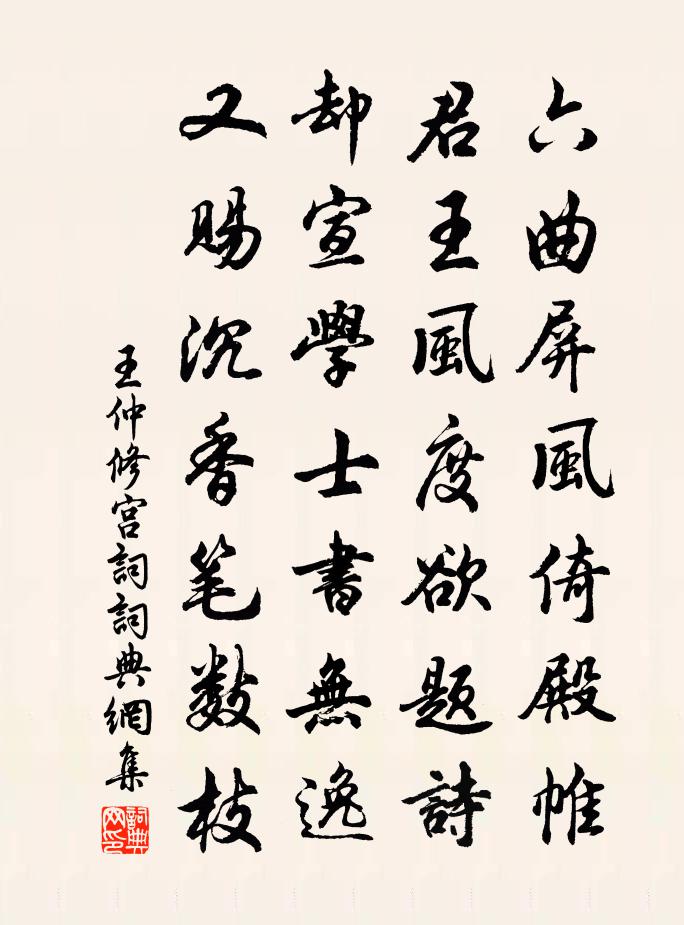 六曲屏風倚殿帷
君王風度欲题詩
却宣學士書無逸
又賜沉香笔数枝
王仲修宫詞詞典網集
詞典網印